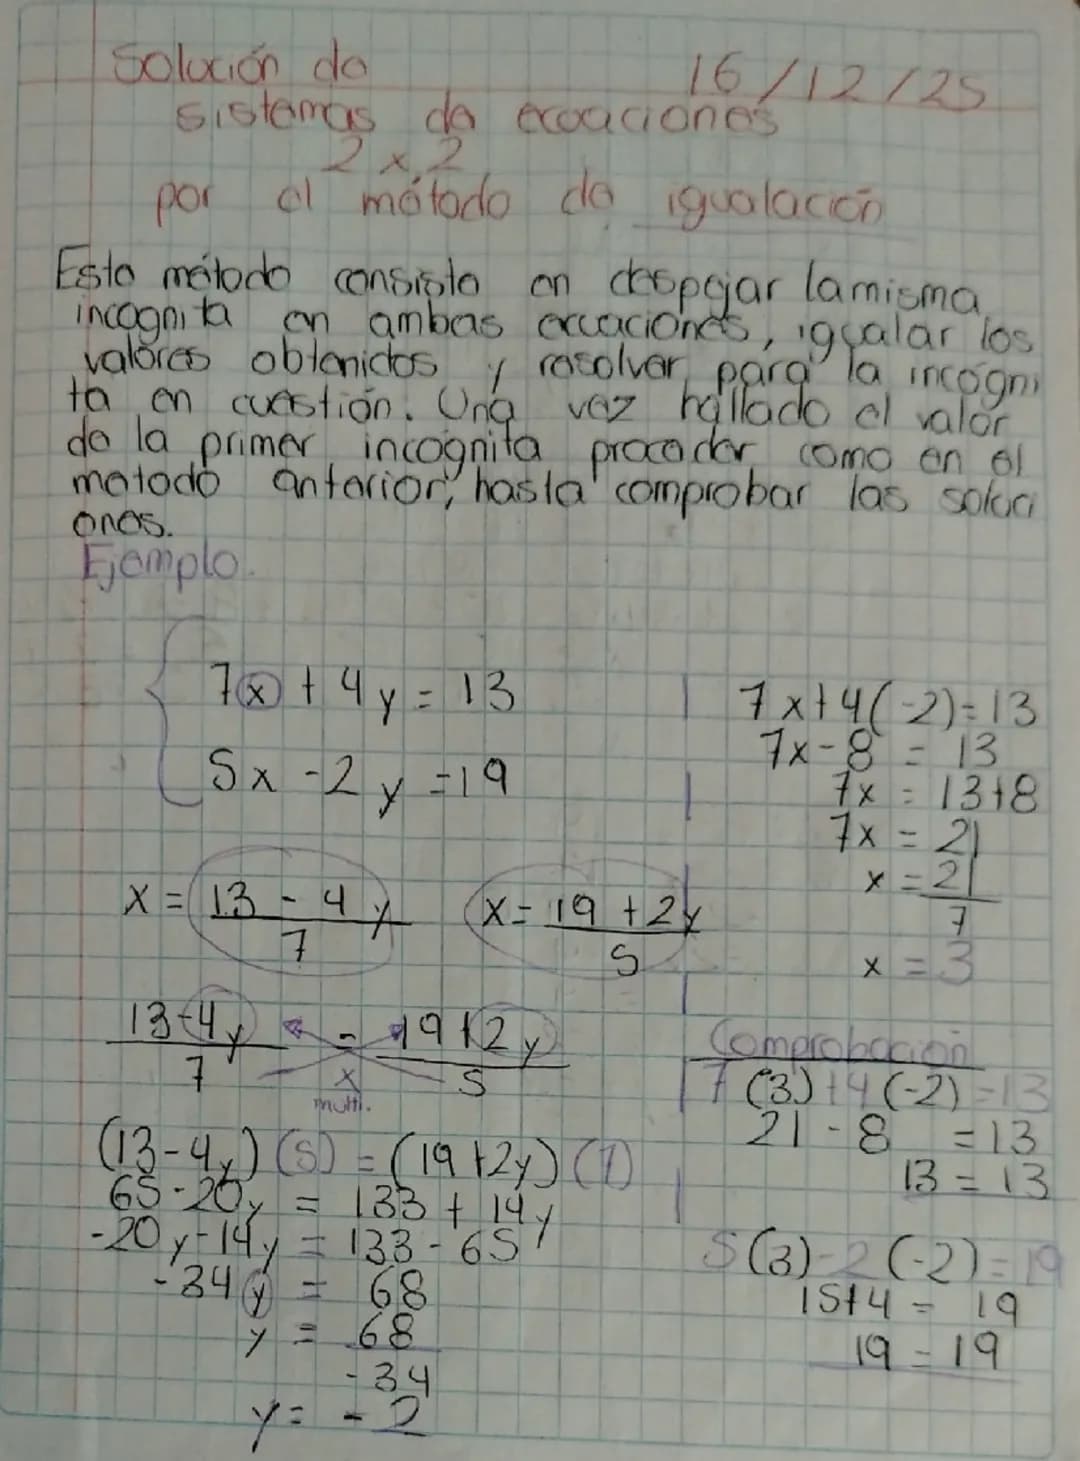 Solución de
16/12/25
sistemas de ecuaciones
2x2
por el método de igualación
Este método consiste en despejar la misma
incognita en ambas ecuaciones, igualar los
valores obtenidos y resolver para la incógni
ta en cuestión. Una vez hallado el valor
de la primer incognita proceder como en el
metodo anterior, hasta comprobar las soluci
ones.
Ejemplo.
7x + 4y = 13
5x - 2y = 19
x = 13 - 4y
7
x = 19 + 2y
5
13-4y = 19+2y
7 5
x
multi.
(13-4y)(5) = (19+2y)(7)
65-20y = 133 + 14y
-20y-14y = 133-65
-34y = 68
y = 68
-34
y = -2
7x+4(-2)=13
7x-8 = 13
7x = 13+8
7x = 21
x = 21
7
x = 3
Comprobación
7(3)+4(-2)=13
21-8 =13
13=13
5(3)-2(-2)=19
15+4 = 19
19=19